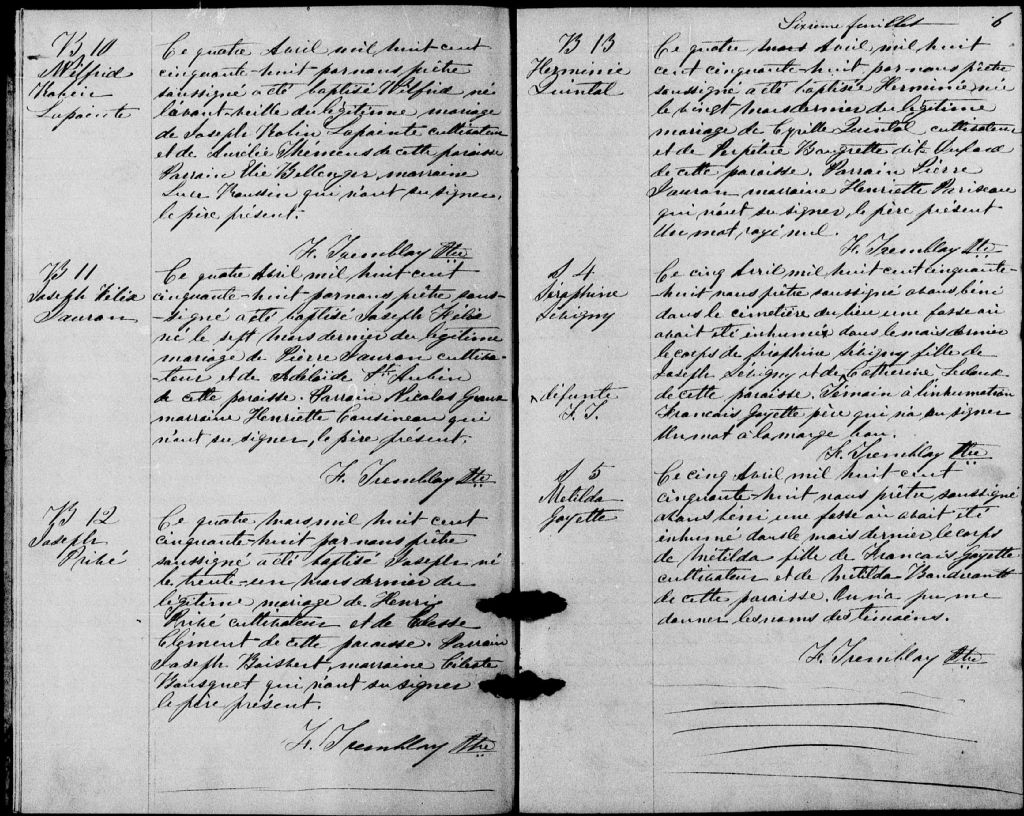 B 10
Wilfrid
Lapointe
Ce quatre Avril mil huit cent
cinquante-huit par nous prêtre
soussigné a été baptisé Wilfrid né
l'avant-veille du légitime mariage
de Joseph Lapointe cultivateur
et de Aurélie Thémens de cette paroisse
Parrain Bellenger, marraine
Luce qui n'ont su signer,
le père présent.
F. Tremblay Ptre
B 11
Joseph Félix
Jauron
Ce quatre Avril mil huit cent
cinquante-huit par nous prêtre sous-
-signé a été baptisé Joseph Félix
né le sept mars dernier du légitime
mariage de Pierre Jauron cultiva-
teur et de Adélaïde St Aubin
de cette paroisse. Parrain Nicolas
marraine Henriette Cousineau qui
n'ont su signer, le père présent.
F. Tremblay Ptre
B 12
Joseph
Ce quatre mars mil huit cent
cinquante-huit par nous prêtre
soussigné a été baptisé Joseph né
le trente-un mars dernier du
légitime mariage de Henri
cultivateur et de
Clément de cette paroisse. Parrain
Joseph Boisvert, marraine Céleste
Bousquet qui n'ont su signer
le père présent.
F. Tremblay Ptre
Sixième feuillet 6
B 13
Herminie
Quintal
Ce quatre mars Avril mil huit
cent cinquante-huit par nous prêtre
soussigné a été baptisée Herminie née
le vingt mars dernier du légitime
mariage de Cyrille Quintal cultivateur
et de Perpétue dit Dufaux
de cette paroisse. Parrain Pierre
Jauron marraine Henriette Pariseau
qui n'ont su signer, le père présent
Un mot rayé nul.
F. Tremblay Ptre
S 4
Séraphine
Sévigny
Ce cinq Avril mil huit cent cinquante-
-huit nous prêtre soussigné avons béni
dans le cimetière du lieu une fosse où
avait été inhumé x dans le mois dernier
le corps de Séraphine Sévigny fille de
Joseph Sévigny et de Catherine Ledoux
de cette paroisse. Témoin à l'inhumation
Francois Goyette père qui n'a su signer
Un mot à la marge bon.
x défunte
F. T.
F. Tremblay Ptre
S 5
Metilda
Goyette
Ce cinq Avril mil huit cent
cinquante-huit nous prêtre soussigné
avons béni une fosse où avait été
inhumé dans le mois dernier le corps
de Métilda fille de Francois Goyette
cultivateur et de Metilda
de cette paroisse. On n'a pu me
donner les noms des témoins.
F. Tremblay Ptre